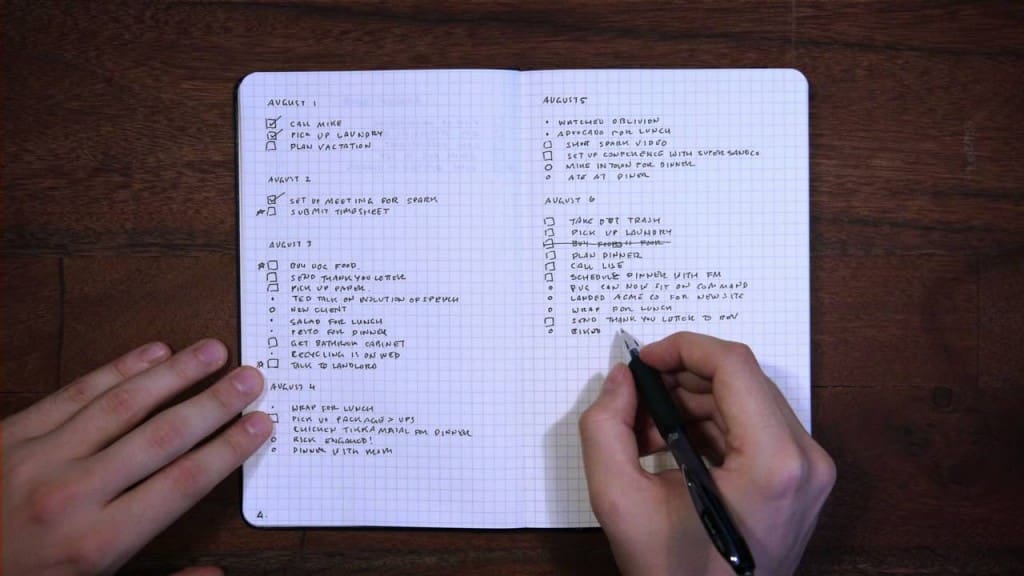 AUGUST 1
CALL MIKE
PICK UP LAUNDRY
PLAN VACTATION
AUGUST 2
SET UP MEETING FOR SPARK
SUBMIT TIMESHEET
AUGUST 3
BUY DOG FOOD
SEND THANK YOU LETTER
PICK UP PAPER.
TED TALK ON EVOLUTION OF SPEECH
NEW CLIENT
SALAD FOR LUNCH
PESTO FOR DINNER
GET BATHROOM CABINET
RECYCLING IS ON WED
TALK TO LANDLORD
AUGUST 4
WRAP FOR LUNCH
PICK UP PACKAGE > UPS
CHICKEN TIKKA FOR DINNER
RICK ENGAGED!
DINNER WITH MOM
4.
AUGUST 5
WATCHED OBLIVION
ADVOCADO FOR LUNCH
SHOOT SPARK VIDEO
SET UP CONFERENCE WITH
MIKE IN TOWN FOR DINNER
ATE AT DINER
AUGUST 6
TAKE OUT TRASH
PICK UP LAUNDRY
BUY
PLAN DINNER
CALL LISE
SCHEDULE DINNER WITH FM
PUG CAN NOW SIT ON COMMAND
LANDED ACME CO FOR NEW SITE
WRAP FOR LUNCH
SEND THANK YOU LETTER TO